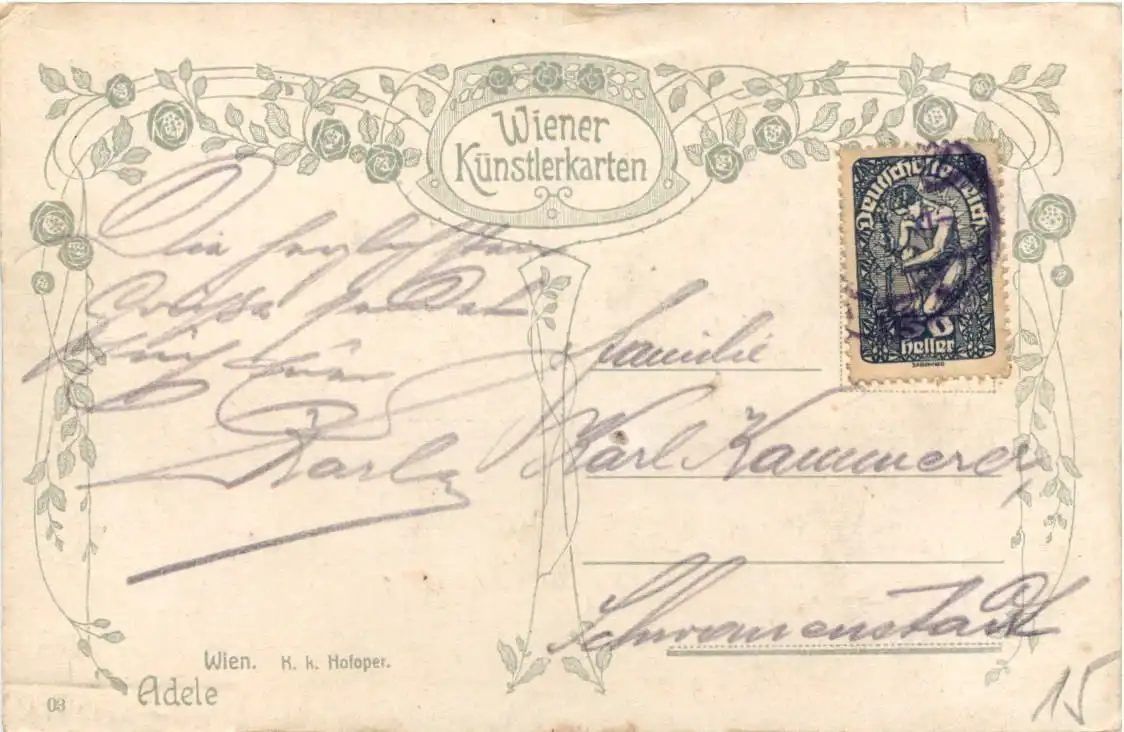 Wiener
Künstlerkarten
Deutschösterreich
50
heller
Die herzlichsten
Grüße sendet
Karl
Familie
Karl Kammerer,
Schwanenstadt
Wien. K. k. Hofoper.
Adele
03
15